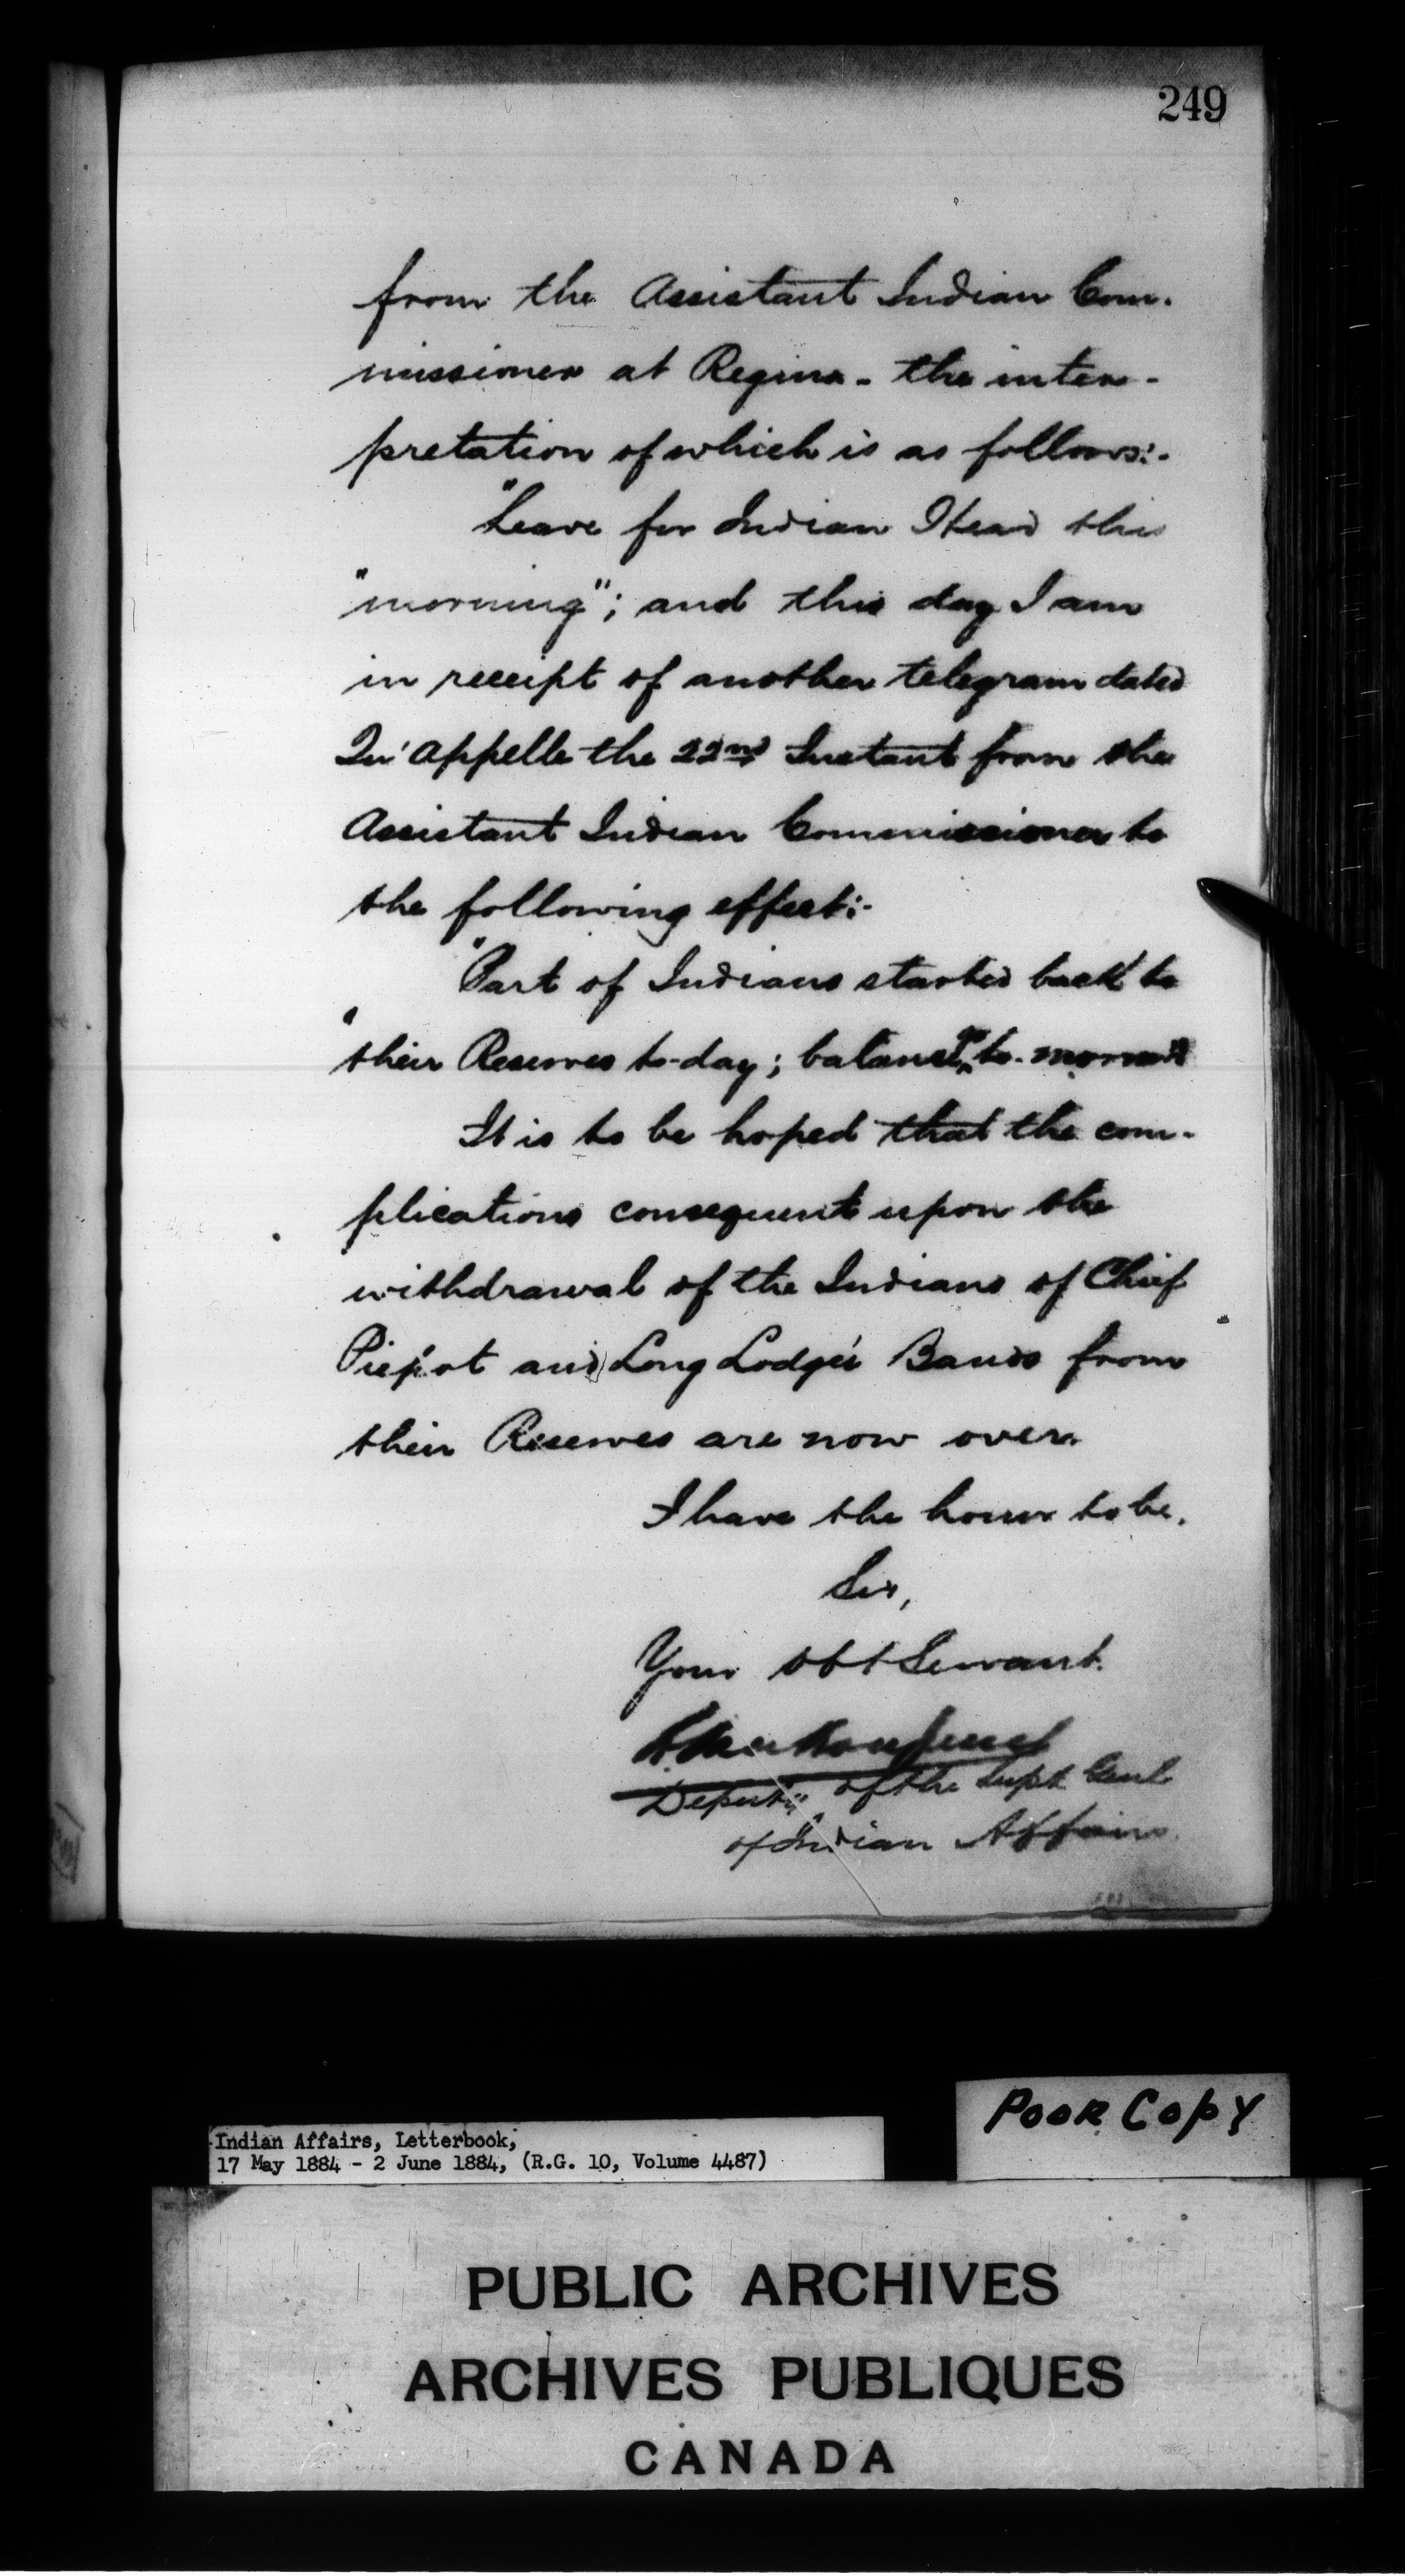 249
from the Assistant Indian Com-
missioner at Regina - the inter-
pretation of which is as follows:-
"Leave for Indian Head this
"morning"; and this day I am
in receipt of another telegram dated
Qu'appelle the 22nd Instant from the
Assistant Indian Commissioner to
the following effect:-
"Part of Indians started back to
"their Reserves to-day; balance go to-morrow"
It is to be hoped that the com-
plications consequent upon the
withdrawal of the Indians of Chief
Piepot and Long Lodge's Bands from
their Reserves are now over.
I have the honor to be,
Sir,
Your obt Servant.
Deputy of the Supt Genl
of Indian Affairs.
Poor Copy
Indian Affairs, Letterbook,
17 May 1884 - 2 June 1884, (R.G. 10, Volume 4487)
PUBLIC ARCHIVES
ARCHIVES PUBLIQUES
CANADA